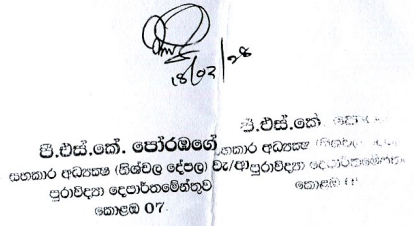 18/02/28
පී.එස්.කේ. පෝරඹගේ
සහකාර අධ්‍යක්ෂ (නිශ්චල දේපල) වැ/ආ
පුරාවිද්‍යා දෙපාර්තමේන්තුව
කොළඹ 07
පී.එස්.කේ.
සහකාර අධ්‍යක්ෂ
පුරාවිද්‍යා දෙපාර්තමේන්තුව
කොළඹ